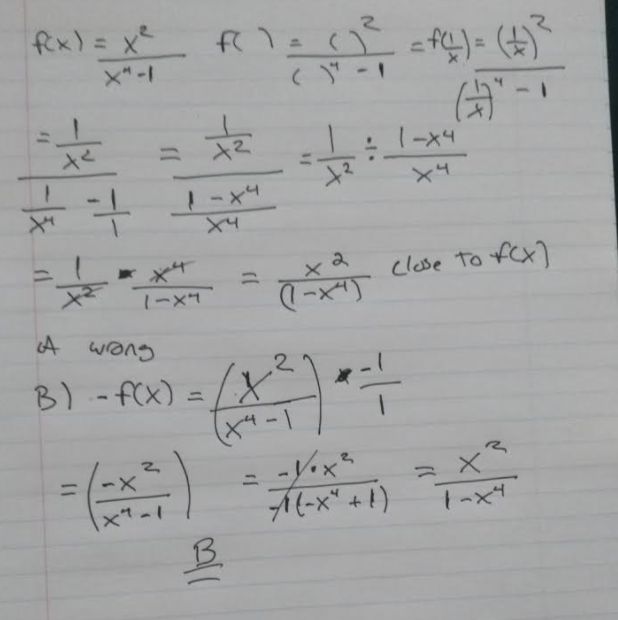 f(x) = x²/(x⁴-1)   f( ) = ( )²/(( )⁴ - 1)   = f(1/x) = (1/x)²/((1/x)⁴ - 1)
= (1/x²)/(1/x⁴ - 1/1) = (1/x²)/((1-x⁴)/x⁴) = 1/x² ÷ (1-x⁴)/x⁴
= 1/x² • x⁴/(1-x⁴) = x²/(1-x⁴) close to f(x)
A wrong
B) -f(x) = (x²/(x⁴-1)) • -1/1
= (-x²/(x⁴-1)) = -1•x²/-1(-x⁴+1) = x²/(1-x⁴)
B